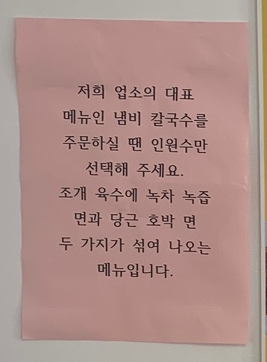 저희 업소의 대표
메뉴인 냄비 칼국수를
주문하실 땐 인원수만
선택해 주세요.
조개 육수에 녹차 녹즙
면과 당근 호박 면
두 가지가 섞여 나오는
메뉴입니다.